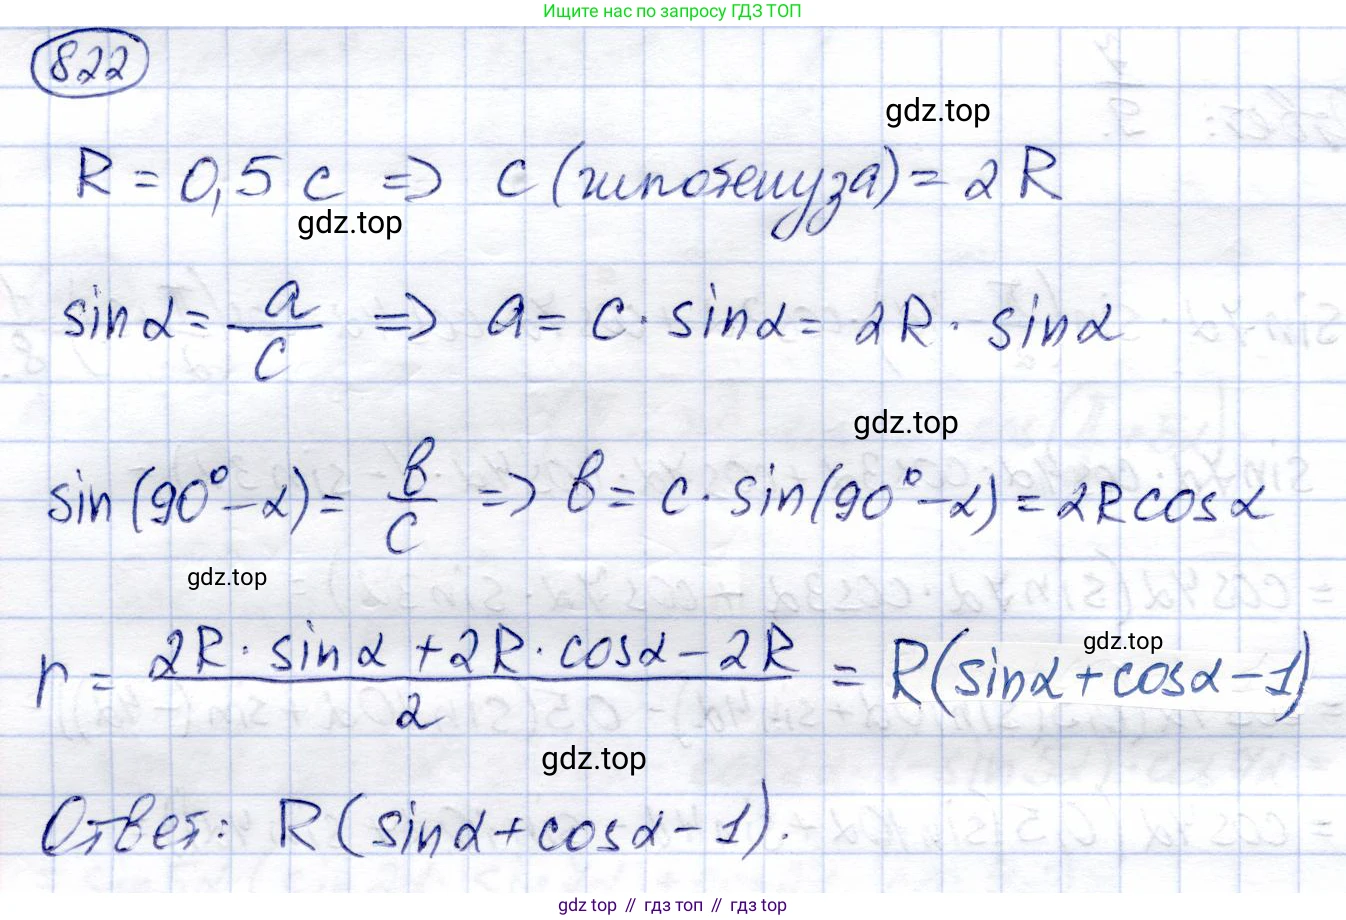 Ищите нас по запросу ГДЗ ТОП
822
gdz.top
R = 0,5 c => c (гипотенуза) = 2R
gdz.top
sin α = a/c => a = c · sin α = 2R · sin α
gdz.top
sin(90° - α) = b/c => b = c · sin(90° - α) = 2R cos α
gdz.top
gdz.top
r = (2R · sin α + 2R · cos α - 2R)/2 = R(sin α + cos α - 1)
gdz.top
Ответ: R(sin α + cos α - 1).
gdz top // гдз топ // gdz top